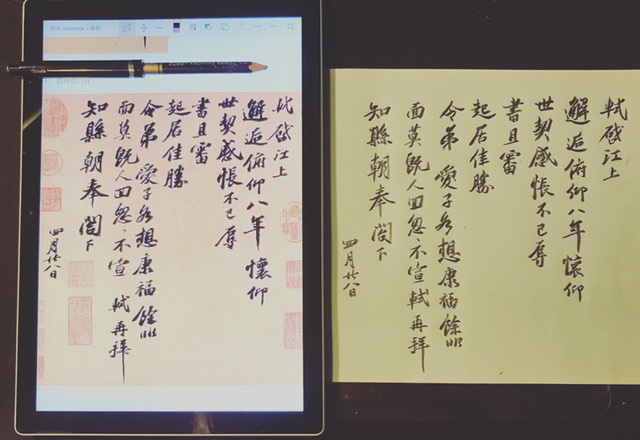 軾啓江上
邂逅俯仰八年懷仰
世契感悵不已辱
書且審
起居佳勝
令弟愛子各想康福餘非
面莫既人回忽々不宣軾再拜
知縣朝奉閣下
四月廿八日
軾啓江上
邂逅俯仰八年懷仰
世契感悵不已辱
書且審
起居佳勝
令弟愛子各想康福餘非
面莫既人回忽々不宣軾再拜
知縣朝奉閣下
四月廿八日